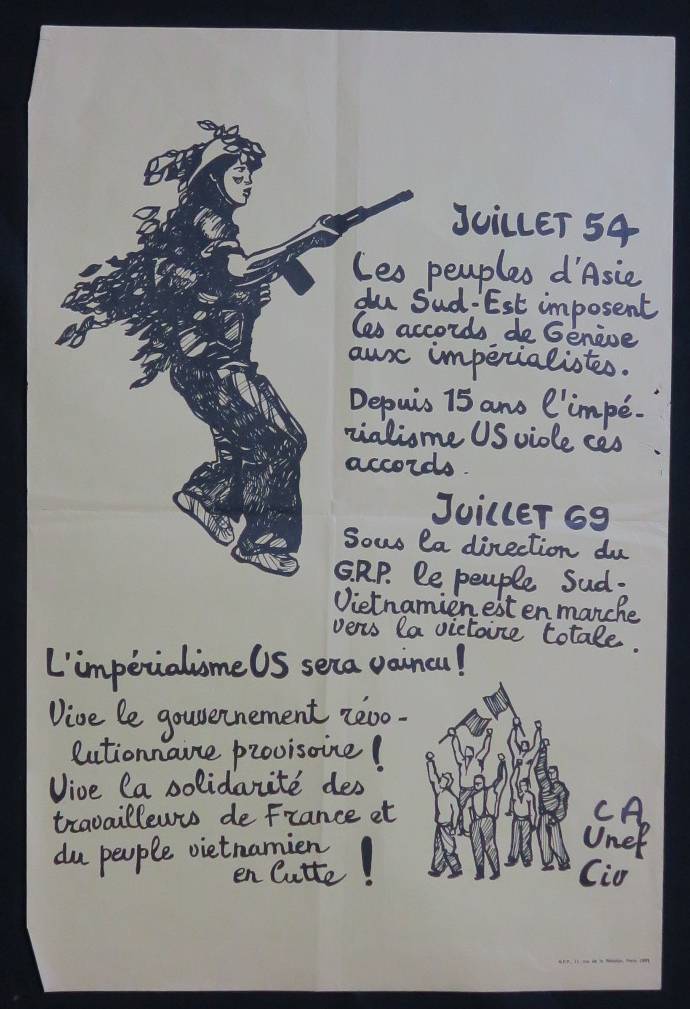 JUILLET 54
Les peuples d'Asie
du Sud-Est imposent
les accords de Genève
aux impérialistes.
Depuis 15 ans l'impé-
rialisme US viole ces
accords.
JUILLET 69
Sous la direction du
G.R.P. le peuple Sud-
Vietnamien est en marche
vers la victoire totale.
L'impérialisme US sera vaincu!
Vive le gouvernement révo-
lutionnaire provisoire!
Vive la solidarité des
travailleurs de France et
du peuple vietnamien
en lutte!
CA
Unef
Civ
11, rue de la
Paris